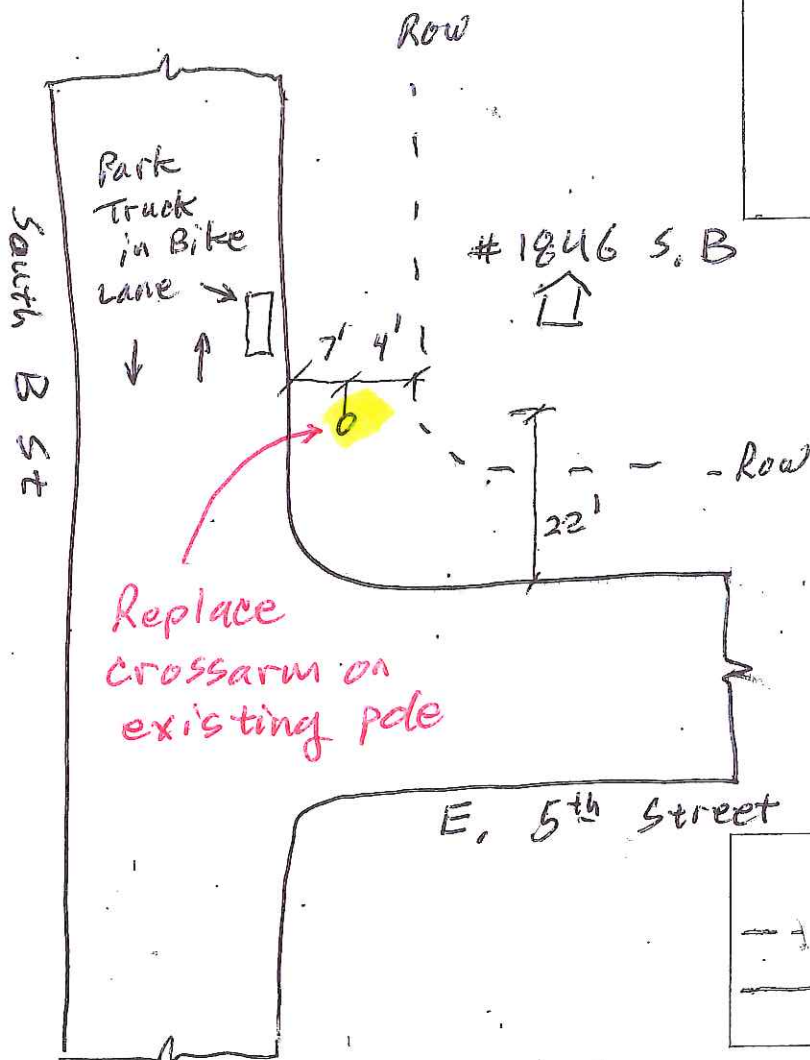 Row
Park
Truck
in Bike
Lane
South B St
# 1846 S. B
7' 4'
Row
22'
Replace
crossarm on
existing pole
E. 5th Street